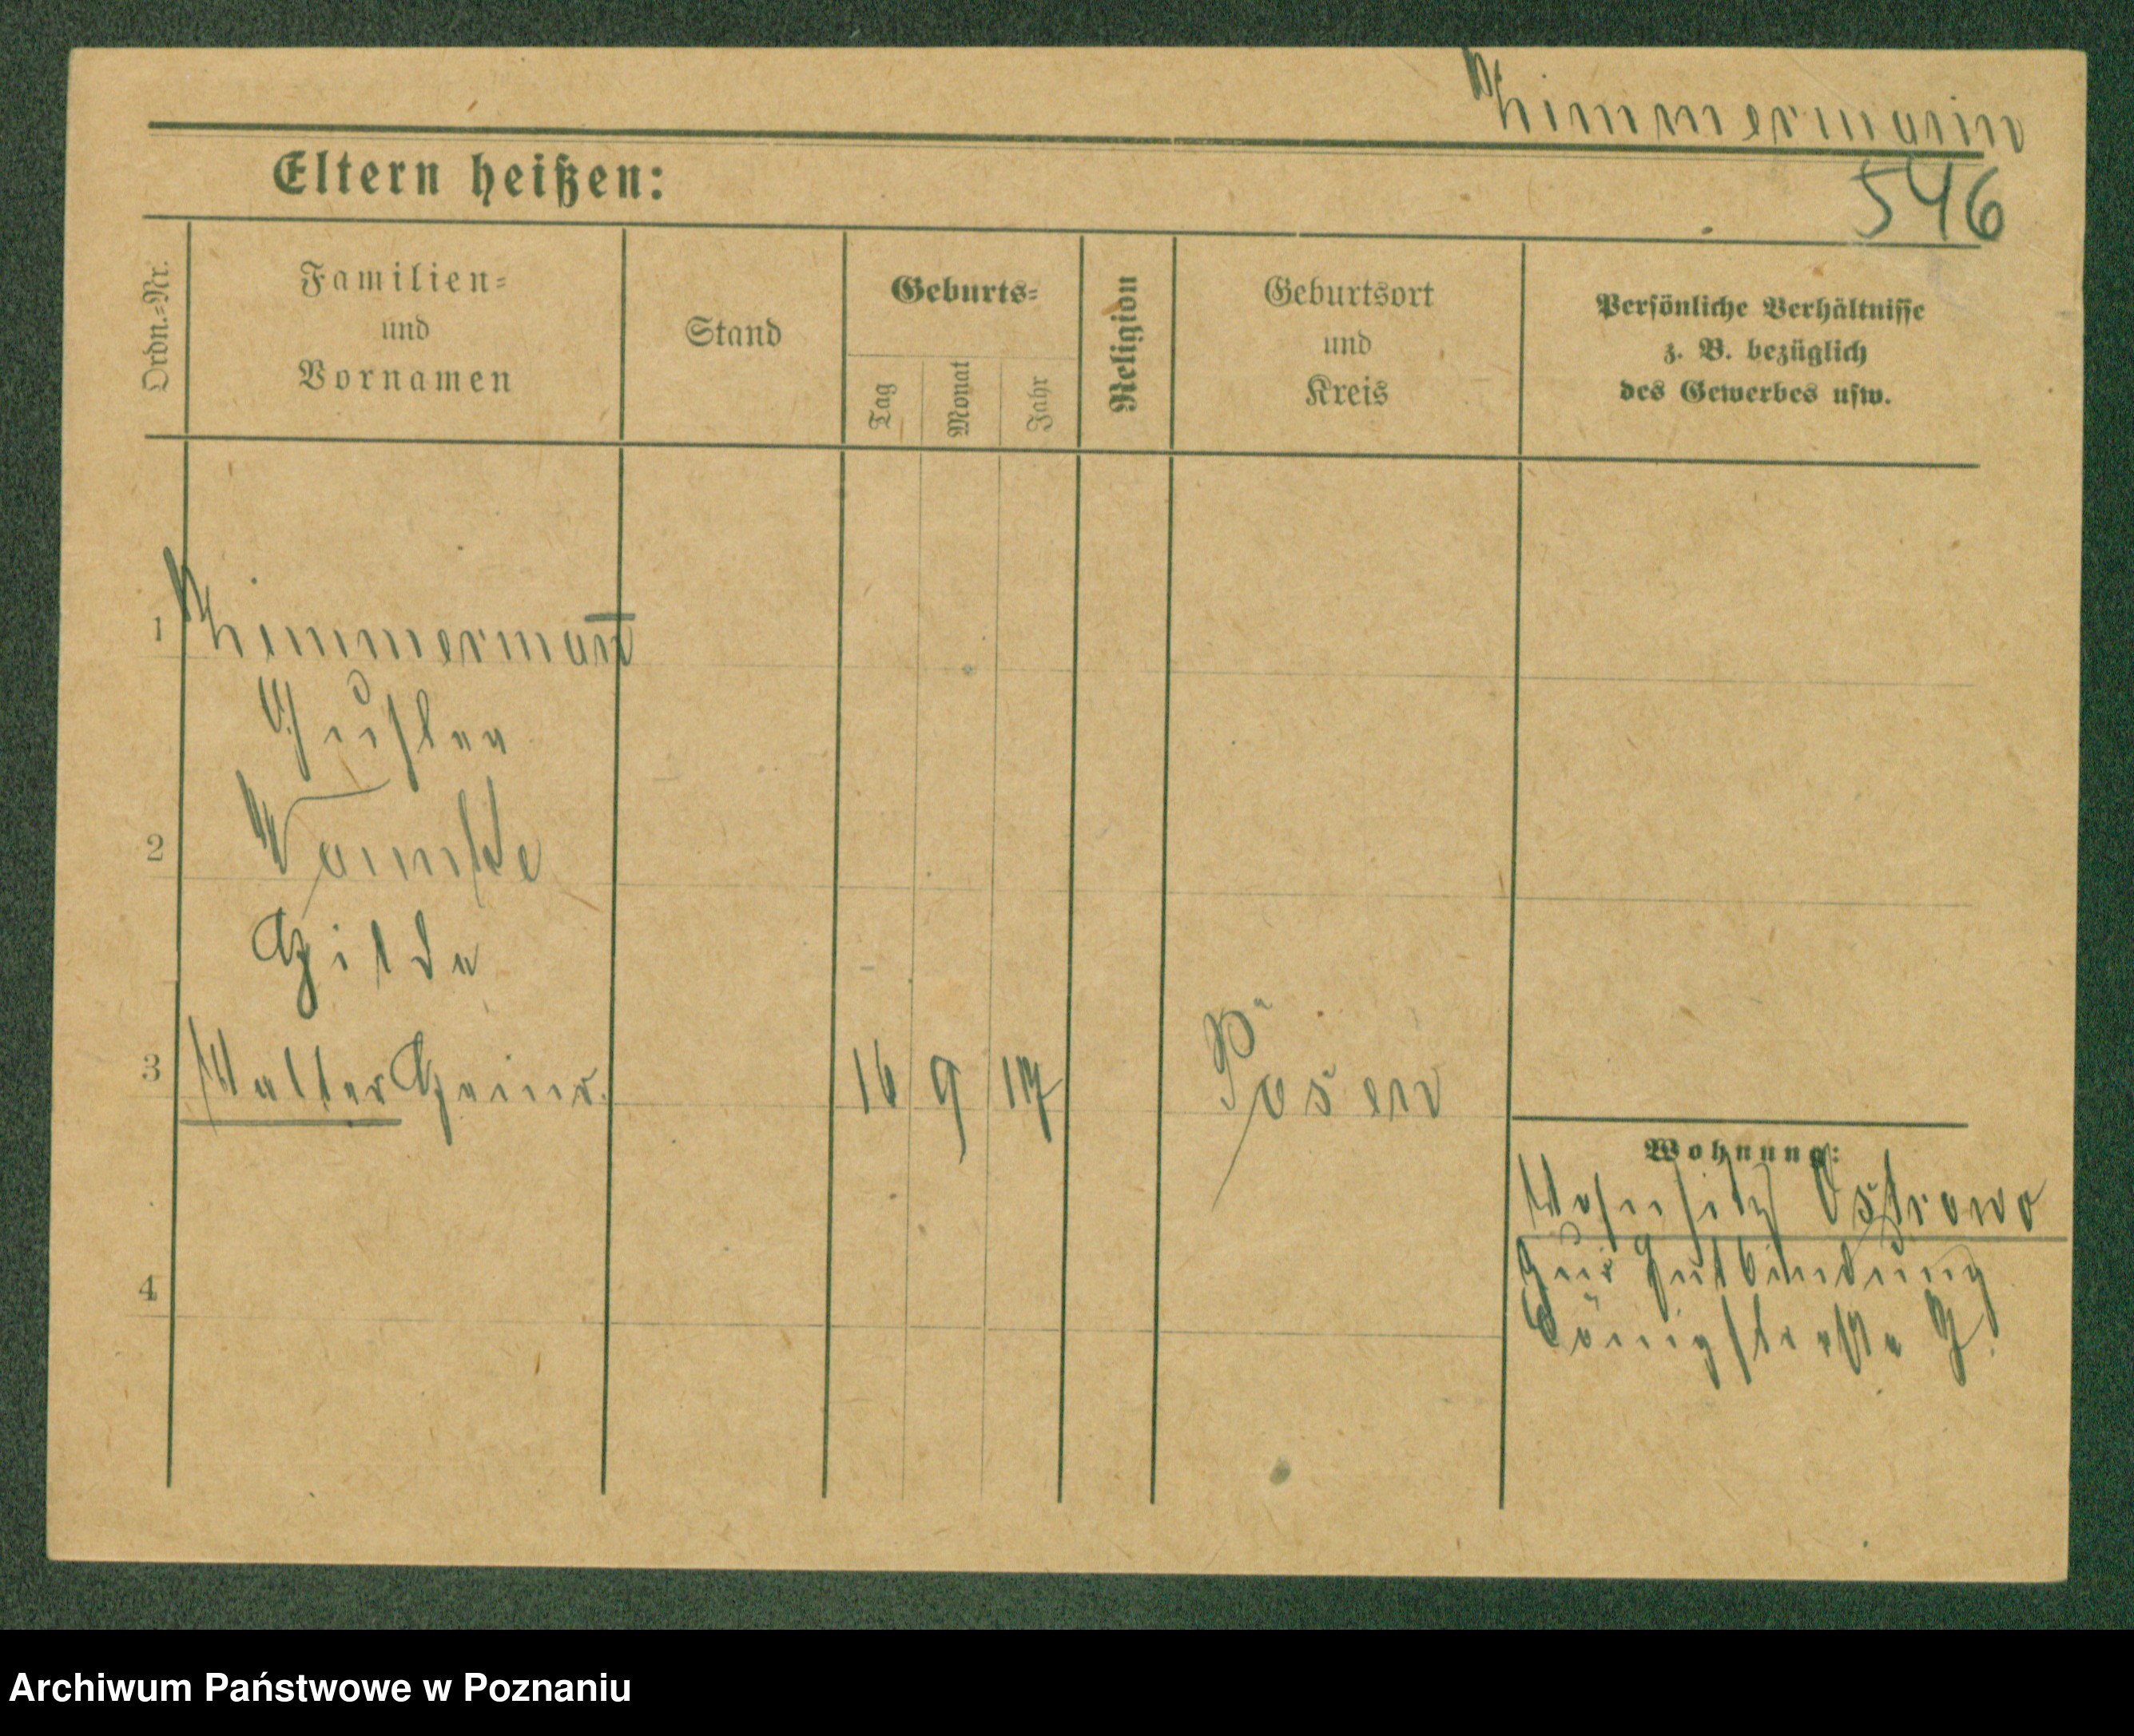 Zimmermann
Eltern heißen:
546
Ordn.=Nr.
Familien=
und
Vornamen
Stand
Geburts=
Tag
Monat
Jahr
Religion
Geburtsort
und
Kreis
Persönliche Verhältnisse
z. B. bezüglich
des Gewerbes usw.
1 Zimmermann̅
2
Hilde
3 Walter Heinr. 16 9 17 Posen
Wohnung:
Wohnsitz Ostrowo
Zur Entbindung
Königstraße
4
Archiwum Państwowe w Poznaniu